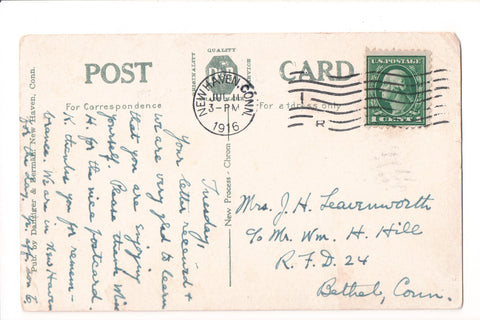 QUALITY
ORIGINALITY
POST
CARD
For Correspondence
For address only
NEW HAVEN, CONN.
JUL 11
3-PM
1916
1
R
U.S. POSTAGE
1 CENT 1
Pub. by Danziger & Berman, New Haven, Conn.
New Process - Chrom
Tuesday,
Your letter received &
we are very glad to learn
that you are enjoying
yourself. Please thank Miss
H. for the nice postcard.
K thanks you for remem-
brance. We are in New Haven
for the day.
Mrs. J. H. Leavenworth
c/o Mr. Wm. H. Hill
R.F.D. 24
Bethel, Conn.